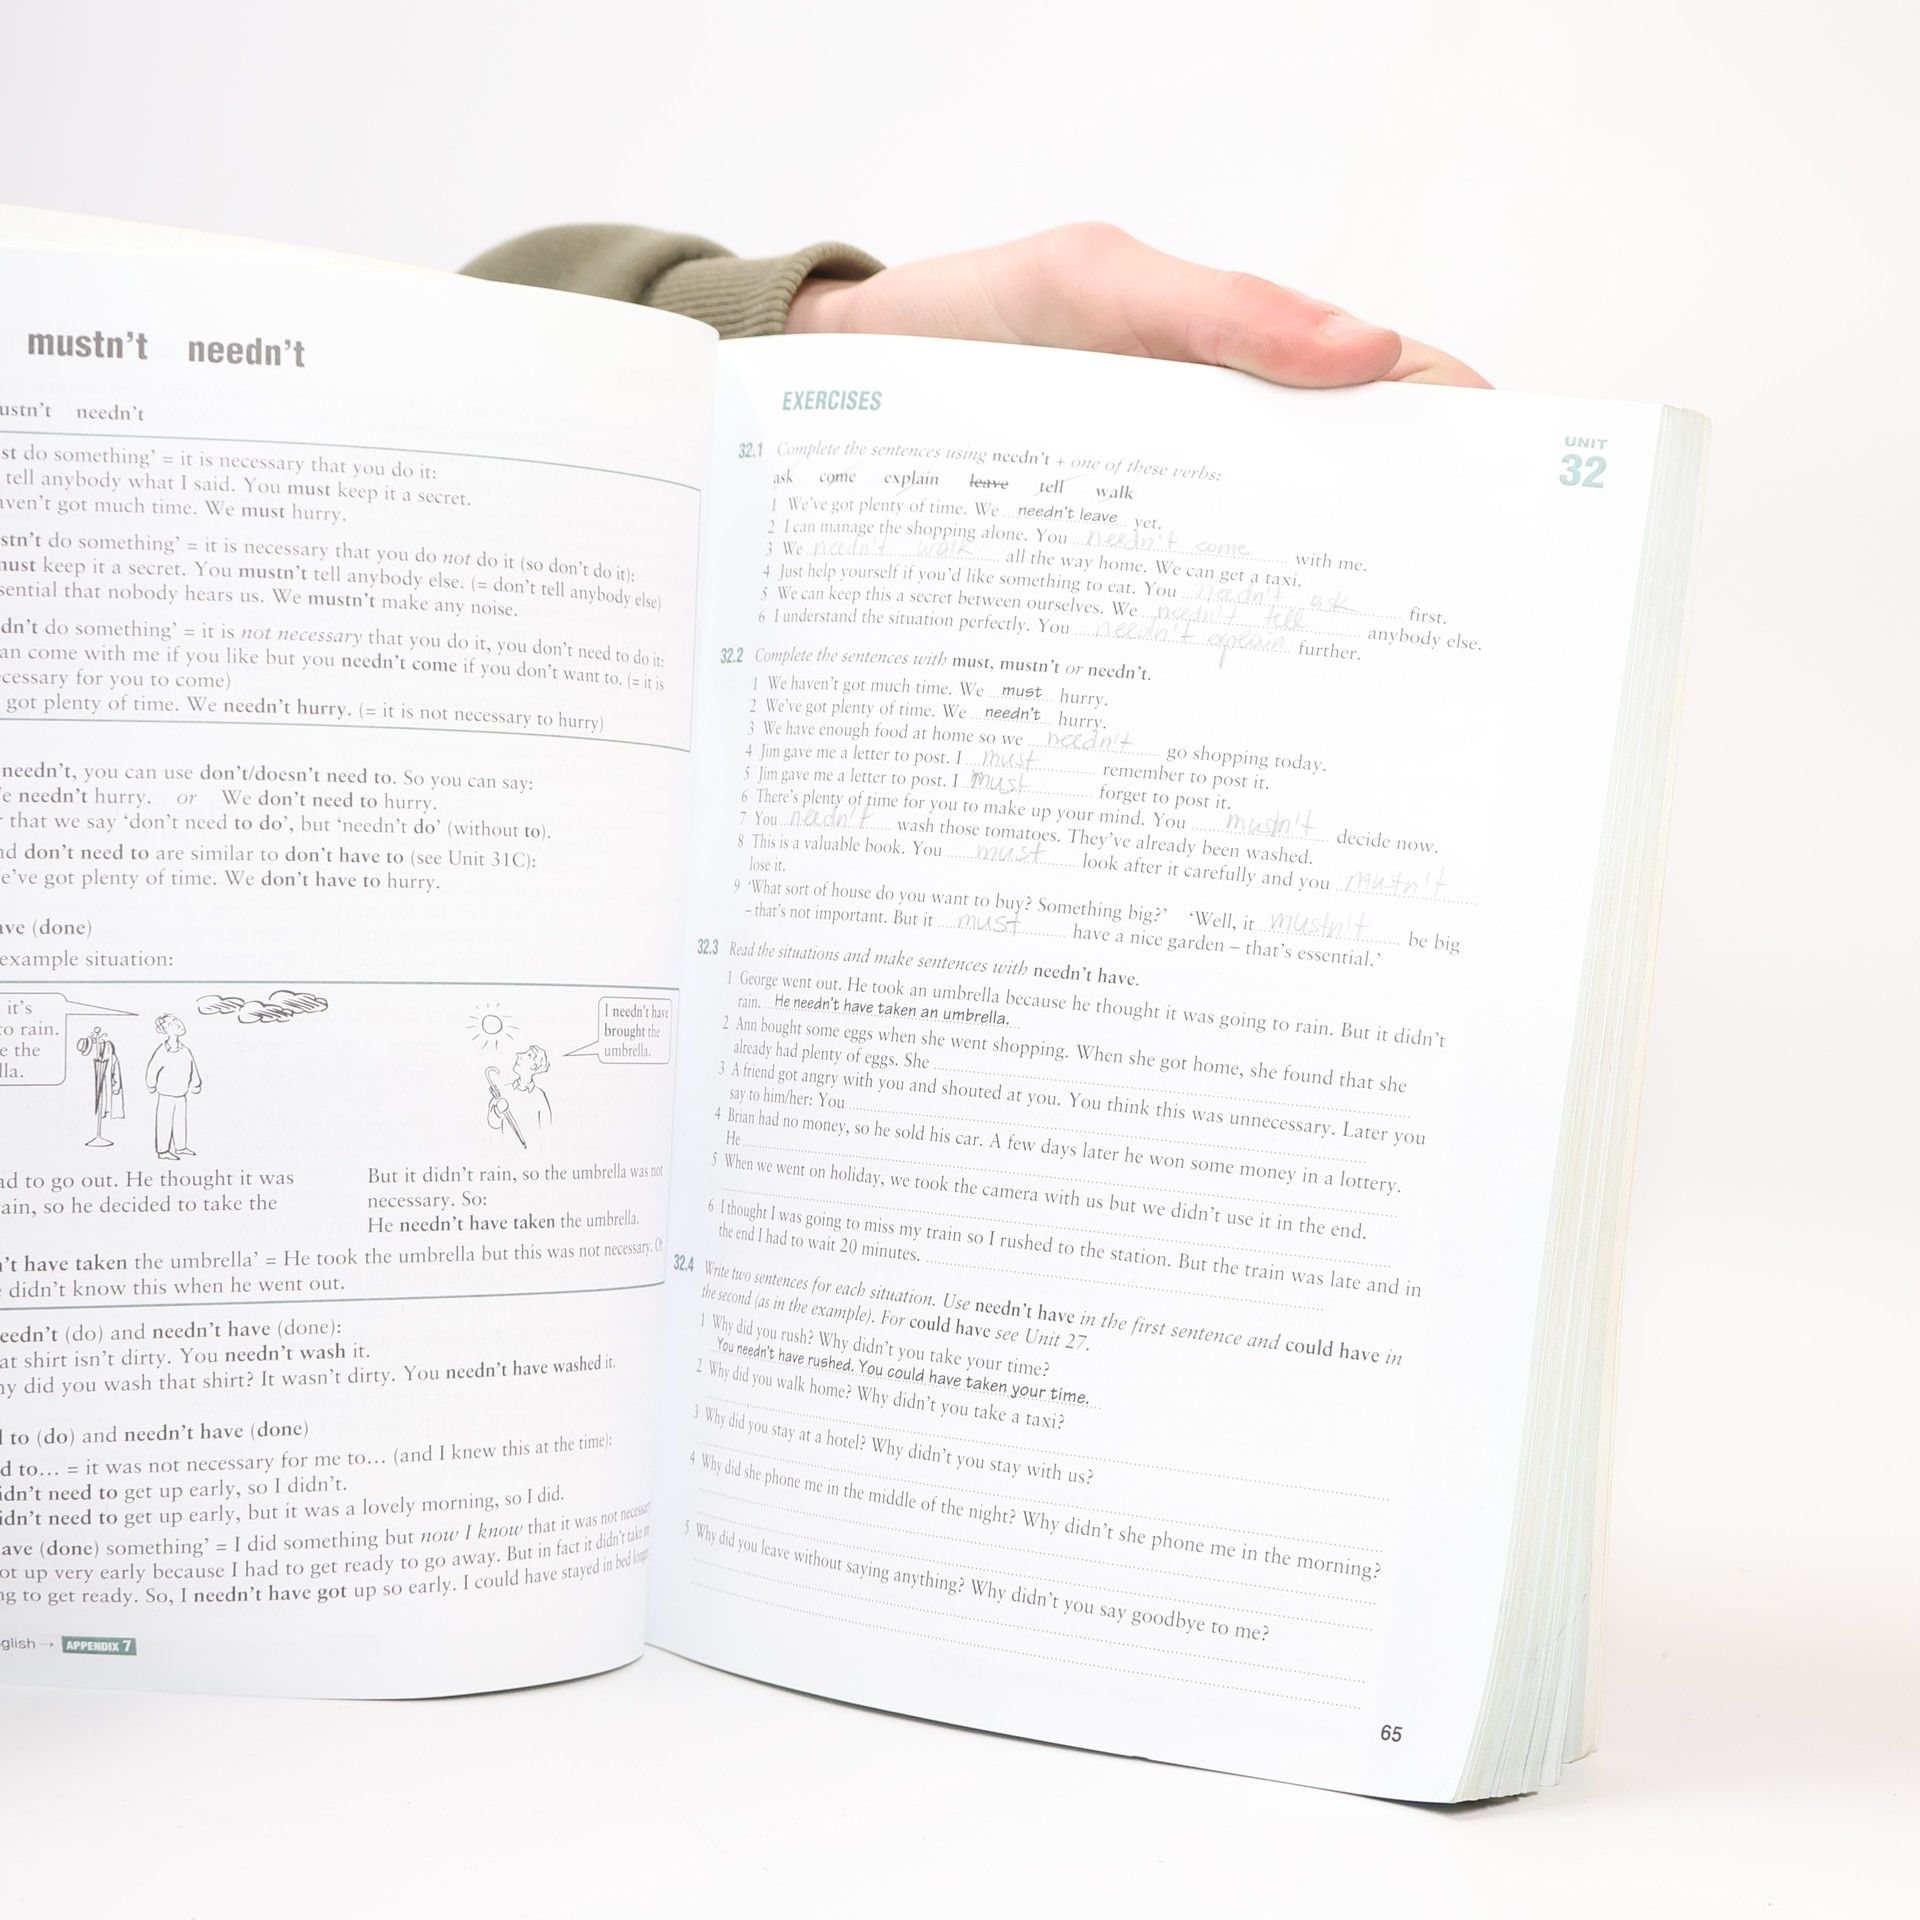 mustn't needn't
ustn't needn't
st do something' = it is necessary that you do it:
tell anybody what I said. You must keep it a secret.
ven't got much time. We must hurry.
stn't do something' = it is necessary that you do not do it (so don't do it):
nust keep it a secret. You mustn't tell anybody else. (= don't tell anybody else)
sential that nobody hears us. We mustn't make any noise.
dn't do something' = it is not necessary that you do it, you don't need to do it:
an come with me if you like but you needn't come if you don't want to. (= it is
cessary for you to come)
got plenty of time. We needn't hurry. (= it is not necessary to hurry)
needn't, you can use don't/doesn't need to. So you can say:
e needn't hurry. or We don't need to hurry.
r that we say 'don't need to do', but 'needn't do' (without to).
nd don't need to are similar to don't have to (see Unit 31C):
e've got plenty of time. We don't have to hurry.
ave (done)
example situation:
it's
to rain.
e the
lla.
I needn't have
brought the
umbrella.
ad to go out. He thought it was
ain, so he decided to take the
But it didn't rain, so the umbrella was not
necessary. So:
He needn't have taken the umbrella.
n't have taken the umbrella' = He took the umbrella but this was not necessary. Of
e didn't know this when he went out.
eedn't (do) and needn't have (done):
at shirt isn't dirty. You needn't wash it.
ny did you wash that shirt? It wasn't dirty. You needn't have washed it.
l to (do) and needn't have (done)
d to... = it was not necessary for me to... (and I knew this at the time):
idn't need to get up early, so I didn't.
idn't need to get up early, but it was a lovely morning, so I did.
ave (done) something' = I did something but now I know that it was not necessary
ot up very early because I had to get ready to go away. But in fact it didn't take m
ng to get ready. So, I needn't have got up so early. I could have stayed in bed longer.
glish → APPENDIX 7
EXERCISES
UNIT
32
32.1 Complete the sentences using needn't + one of these verbs:
ask come explain leave tell walk
1 We've got plenty of time. We needn't leave yet.
2 I can manage the shopping alone. You needn't come with me.
3 We needn't walk all the way home. We can get a taxi.
4 Just help yourself if you'd like something to eat. You needn't ask first.
5 We can keep this a secret between ourselves. We needn't tell anybody else.
6 I understand the situation perfectly. You needn't explain further.
32.2 Complete the sentences with must, mustn't or needn't.
1 We haven't got much time. We must hurry.
2 We've got plenty of time. We needn't hurry.
3 We have enough food at home so we needn't go shopping today.
4 Jim gave me a letter to post. I must remember to post it.
5 Jim gave me a letter to post. I must forget to post it.
6 There's plenty of time for you to make up your mind. You mustn't decide now.
7 You needn't wash those tomatoes. They've already been washed.
8 This is a valuable book. You must look after it carefully and you mustn't
lose it.
9 'What sort of house do you want to buy? Something big?' 'Well, it mustn't be big
– that's not important. But it must have a nice garden – that's essential.'
32.3 Read the situations and make sentences with needn't have.
1 George went out. He took an umbrella because he thought it was going to rain. But it didn't
rain. He needn't have taken an umbrella.
2 Ann bought some eggs when she went shopping. When she got home, she found that she
already had plenty of eggs. She
3 A friend got angry with you and shouted at you. You think this was unnecessary. Later you
say to him/her: You
4 Brian had no money, so he sold his car. A few days later he won some money in a lottery.
He
5 When we went on holiday, we took the camera with us but we didn't use it in the end.
6 I thought I was going to miss my train so I rushed to the station. But the train was late and in
the end I had to wait 20 minutes.
32.4 Write two sentences for each situation. Use needn't have in the first sentence and could have in
the second (as in the example). For could have see Unit 27.
1 Why did you rush? Why didn't you take your time?
You needn't have rushed. You could have taken your time.
2 Why did you walk home? Why didn't you take a taxi?
3 Why did you stay at a hotel? Why didn't you stay with us?
4 Why did she phone me in the middle of the night? Why didn't she phone me in the morning?
5 Why did you leave without saying anything? Why didn't you say goodbye to me?
65